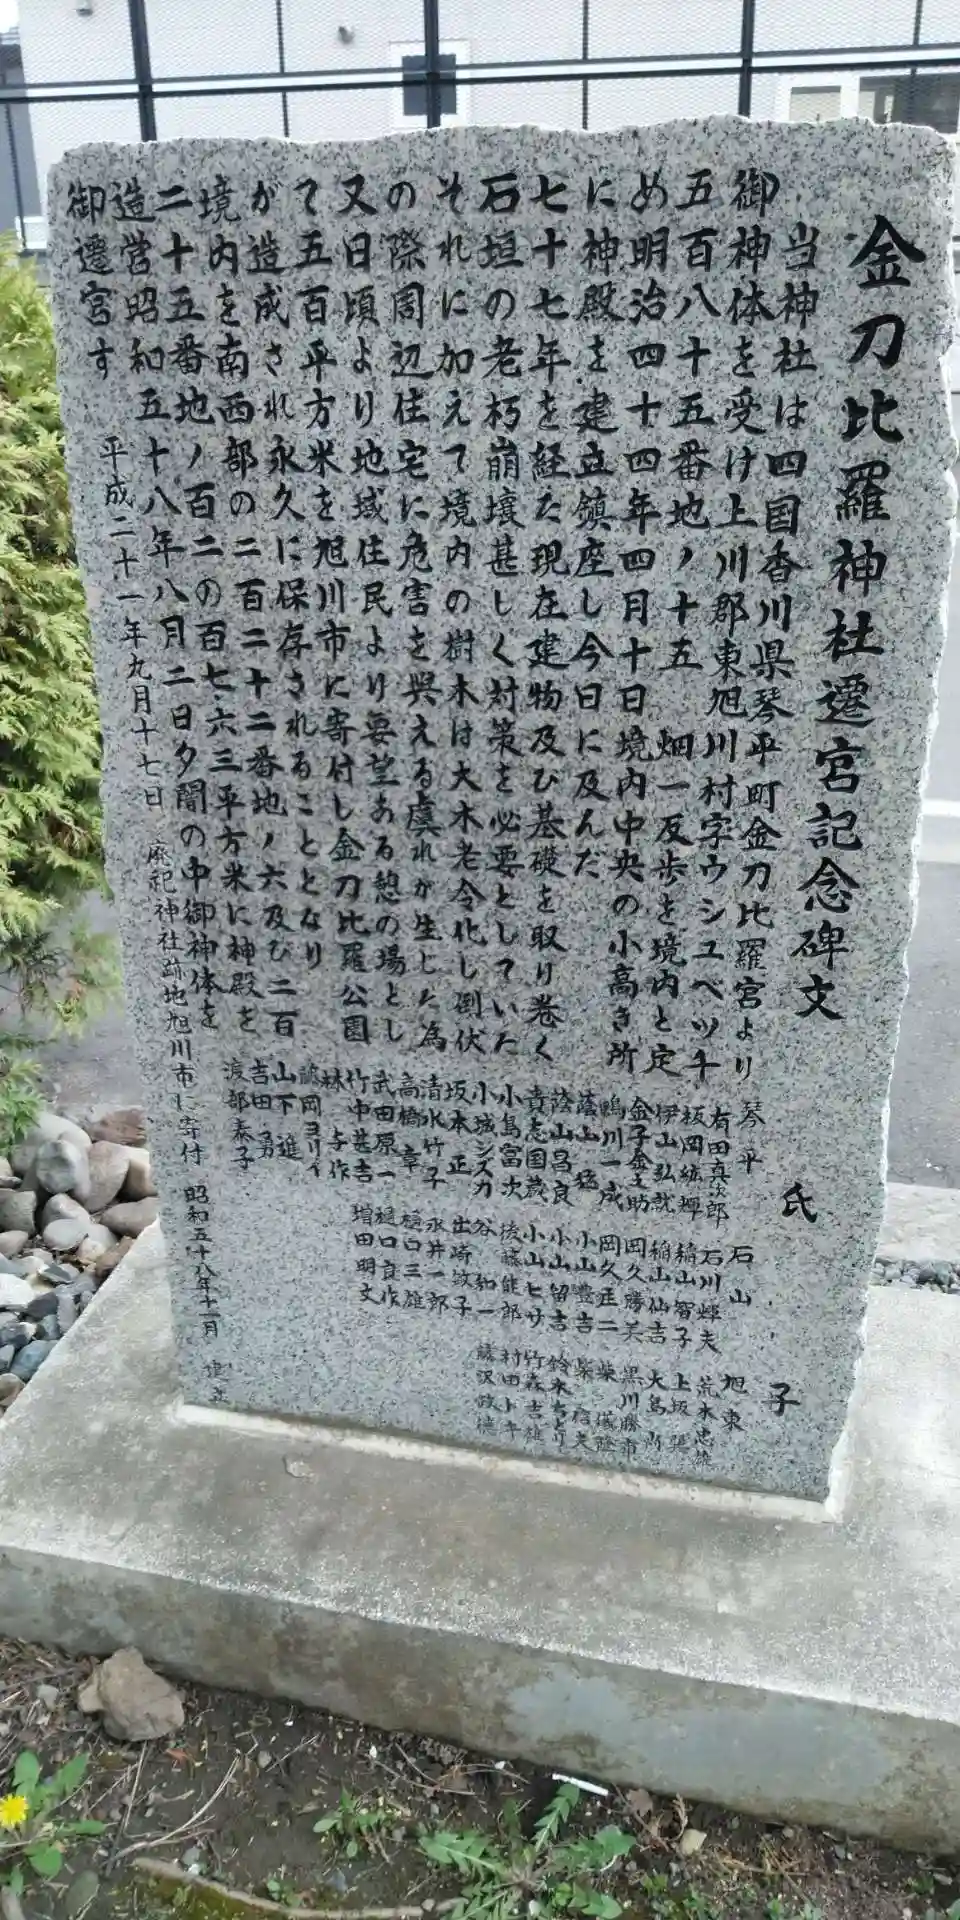 金刀比羅神社遷宮記念碑文
当神社は四国香川県琴平町金刀比羅宮より
御神体を受け上川郡東旭川村字ウシユベツ千
五百八十五番地ノ十五 畑一反歩を境内と定
め明治四十四年四月十日境内中央の小高き所
に神殿を建立鎮座し今日に及んだ
七十七年を経た現在建物及び基礎を取り巻く
石垣の老朽崩壊甚しく対策を必要としていた
それに加えて境内の樹木は大木老令化し倒伏
の際周辺住宅に危害を與える虞れが生じた為
又日頃より地域住民より要望ある憩の場とし
て五百平方米を旭川市に寄付し金刀比羅公園
が造成され永久に保存されることとなり
境内を南西部の二百二十二番地ノ六及び二百
二十五番地ノ百二の百七六三平方米に神殿を
造営昭和五十八年八月二日夕闇の中御神体を
御遷宮す
平成二十一年九月十七日 廃祀神社跡地旭川市に寄付 昭和五十八年十一月 建立
氏 子
琴平 石山 旭東
有田真次郎 石川輝夫 荒木忠雄
板岡紘輝 稲山智子 上坂
伊山弘就 稲山仙吉 大島
金子金之助 岡久勝美 黒川勝市
鴨川一成 岡久正二 柴
蔭山猛 小山豊吉 柴 信夫
蔭山昌良 小山留吉 鈴木ちどり
貴志国蔵 小山ヒサ 竹森吉雄
小島富次 後藤能郎 村田トキ
小城シズカ 谷 和一 藤沢政徳
坂本正 出崎敏子
清水竹子 永井一郎
高橋章 樋口三雄
武田原一 樋口良作
竹中甚吉 増田明文
林 与作
諸岡ヨリイ
山下 進
吉田 勇
渡部泰子